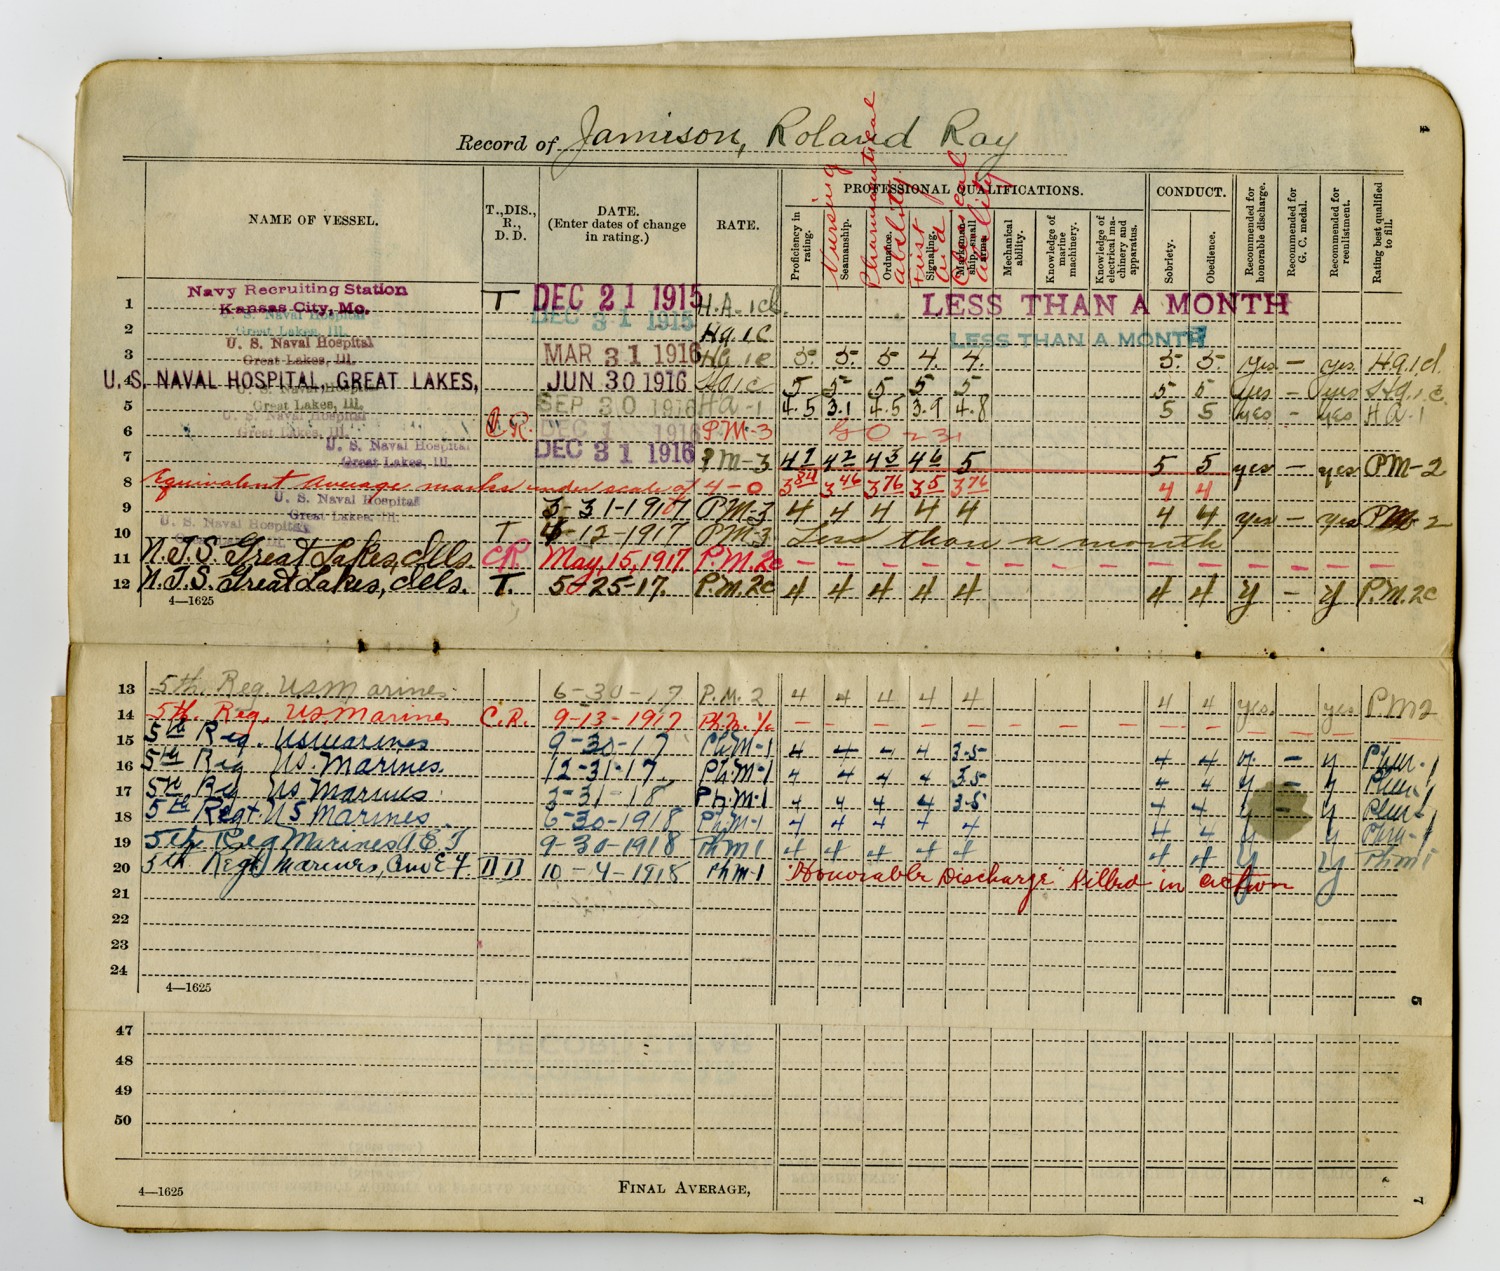 Record of Jamison, Roland Ray
NAME OF VESSEL. T., DIS., R., D. D. DATE. (Enter dates of change in rating.) RATE. PROFESSIONAL QUALIFICATIONS. CONDUCT. Recommended for honorable discharge. Recommended for G. C. medal. Recommended for reenlistment. Rating best qualified to fill.
Proficiency in rating. Seamanship. Ordnance. Signaling. Marksmanship, small arms. Mechanical ability. Knowledge of marine machinery. Knowledge of electrical machinery and apparatus. Sobriety. Obedience.
Nursing Pharmaceutical ability. First Aid Clerical ability
1 Navy Recruiting Station Kansas City, Mo. T DEC 21 1915 H.A. 1cl LESS THAN A MONTH
2 U. S. Naval Hospital Great Lakes, Ill. DEC 31 1915 Ha. 1c LESS THAN A MONTH
3 U. S. Naval Hospital Great Lakes, Ill. MAR 31 1916 Ha. 1c 5 5 5 4 4 5 5 yes – yes Ha. 1cl.
4 U. S. NAVAL HOSPITAL, GREAT LAKES, JUN 30 1916 Ha 1c 5 5 5 5 5 5 5 yes – yes Ha. 1c.
U. S. Naval Hospital
5 Great Lakes, Ill. SEP 30 1916 HA-1 4.5 3.1 4.5 3.9 4.8 5 5 yes – yes HA-1
U. S. Naval Hospital
6 Great Lakes, Ill. CR DEC 1 1916 PM-3
7 U. S. Naval Hospital Great Lakes, Ill. DEC 31 1916 PM-3 4 7 4 2 4 3 4 6 5 5 5 yes – yes PM-2
8 Equivalent average marks under scale of 4-0 3 84 3 46 3 76 3 5 3 76 4 4
9 U. S. Naval Hospital Great Lakes, Ill. 3-31-1917 PM-3 4 4 4 4 4 4 4 yes – yes PM-2
10 U. S. Naval Hospital T 4-12-1917 PM-3 Less than a month
11 N.T.S. Great Lakes, Ills. CR May, 15, 1917 P.M. 2c – – – – – – – – – – – – – –
12 N.T.S. Great Lakes, Ills. T. 5-25-17. P.M. 2c 4 4 4 4 4 4 4 y – y P.M. 2c
4—1625
13 5th Reg. U.S. Marines 6-30-17 P.M. 2 4 4 4 4 4 4 4 yes. yes PM2
14 5th. Reg. U.S. Marines C.R. 9-13-1917 Ph.M. 1/c – – – – – – – – – – – – –
15 5th Reg. US Marines 9-30-17 PhM-1 4 4 4 4 3.5 4 4 y – y PhM-1
16 5th Reg US. Marines. 12-31-17. PhM-1 4 4 4 4 3.5 4 4 y – y PhM-1
17 5th Reg US Marines 3-31-18 PhM-1 4 4 4 4 3.5 4 4 y – y PhM-1
18 5th Regt. US Marines 6-30-1918 PhM-1 4 4 4 4 4 4 4 y y PhM-1
19 5th Reg Marines A.E.F 9-30-1918 PhM1 4 4 4 4 4 4 4 y y PhM1
20 5th Reg. Marines, AmE F DD 10-4-1918 PhM-1 "Honorable Discharge" Killed in action
21
22
23
24
4—1625
5
47
48
49
50
4—1625 FINAL AVERAGE,
7